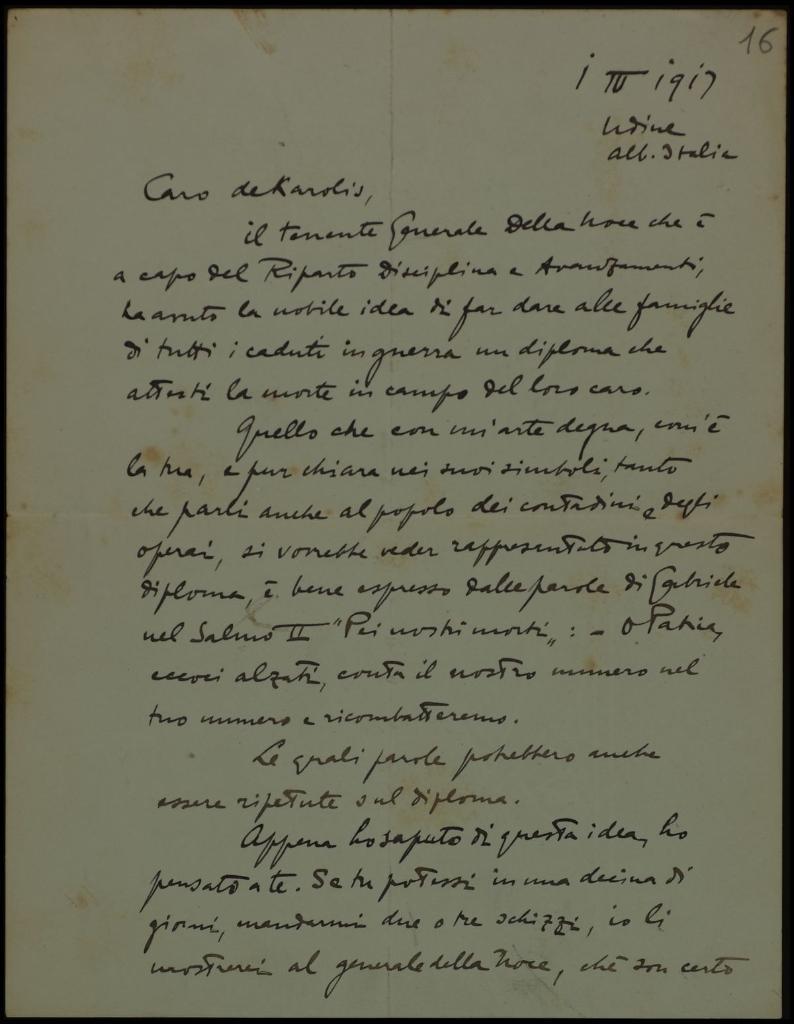 16
1 IV 1917
Udine
Alb. Italia
Caro deKarolis,
il tenente Generale Della Noce che è
a capo del Riparto Disciplina e Avanzamenti,
ha avuto la nobile idea di far dare alle famiglie
di tutti i caduti in guerra un diploma che
attesti la morte in campo del loro caro.
Quello che con un'arte degna, com'è
la tua, e pur chiara nei suoi simboli, tanto
che parli anche al popolo dei contadini e degli
operai, si vorrebbe veder rappresentato in questo
diploma, è bene espresso dalle parole di Gabriele
nel Salmo II "Pei nostri morti„ : – O Patria,
eccoci alzati, conta il nostro numero nel
tuo numero e ricombatteremo.
Le quali parole potrebbero anche
essere ripetute sul diploma.
Appena ho saputo di questa idea, ho
pensato a te. Se tu potessi in una decina di
giorni, mandarmi due o tre schizzi, io li
mostrerei al generale della Noce, chè son certo